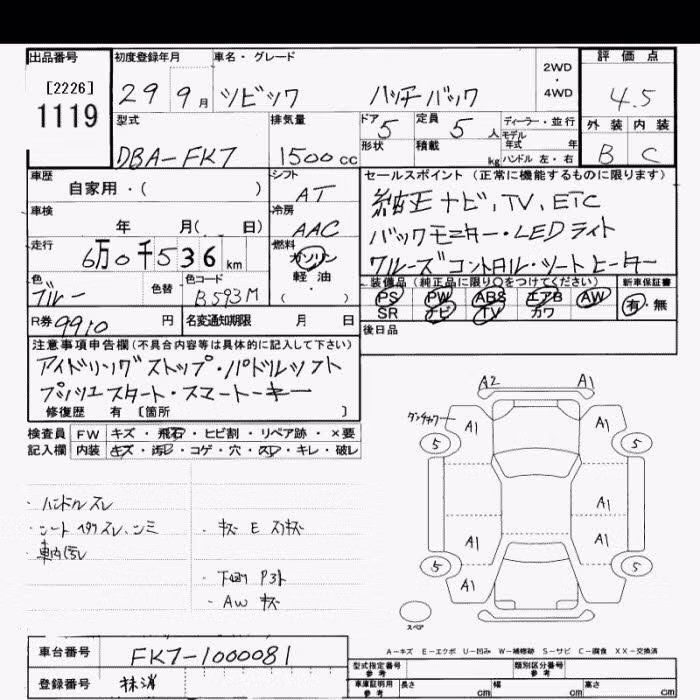 出品番号 初度登録年月 車名・グレード 評価点
[2226] 29 9月 シビック ハッチバック 2WD・4WD 4.5
1119
型式 排気量 ドア 5 定員 5人 ディーラー・並行 外装 内装
モデル年式 年
DBA-FK7 1500cc 形状 積載 kg ハンドル 左・右 B C
車歴 シフト セールスポイント (正常に機能するものに限ります)
自家用・( ) AT 純正ナビ、TV、ETC
車検 冷房 バックモニター・LEDライト
年 月( 日) AAC クルーズコントロル・シートヒーター
走行 燃料
6万0千536km ガソリン
軽・油
( )
色 色替 色コード 装備品 (純正品に限り○をつけてください) 新車保証書
ブルー B593M PS PW ABS エアB AW 有・無
SR ナビ TV カワ
R券 9910円 名変通知期限 月 日 後日品
注意事項申告欄 (不具合内容等は具体的に記入して下さい)
アイドリングストップ・パドルシフト
プッシュスタート・スマートキー
修復歴 有 [箇所 ]
検査員 FW キズ・飛石・ヒビ割・リペア跡・×要
記入欄 内装 キズ・汚レ・コゲ・穴・スレ・キレ・破レ
A2 A1
A1 A1
5 5
A1
A1 A1
5 5
A1
スペア
・ハンドルスレ
・シート スレ、シミ ・キズ E
・車内汚レ
・下回り
・AW キズ
A-キズ E-エクボ U-凹み W-補修跡 S-サビ C-腐食 XX-交換済
車台番号 FK7-1000081
登録番号 抹消
型式指定番号 参考 類別区分番号 参考
車庫証明用 参考 長さ cm 幅 cm 高さ cm